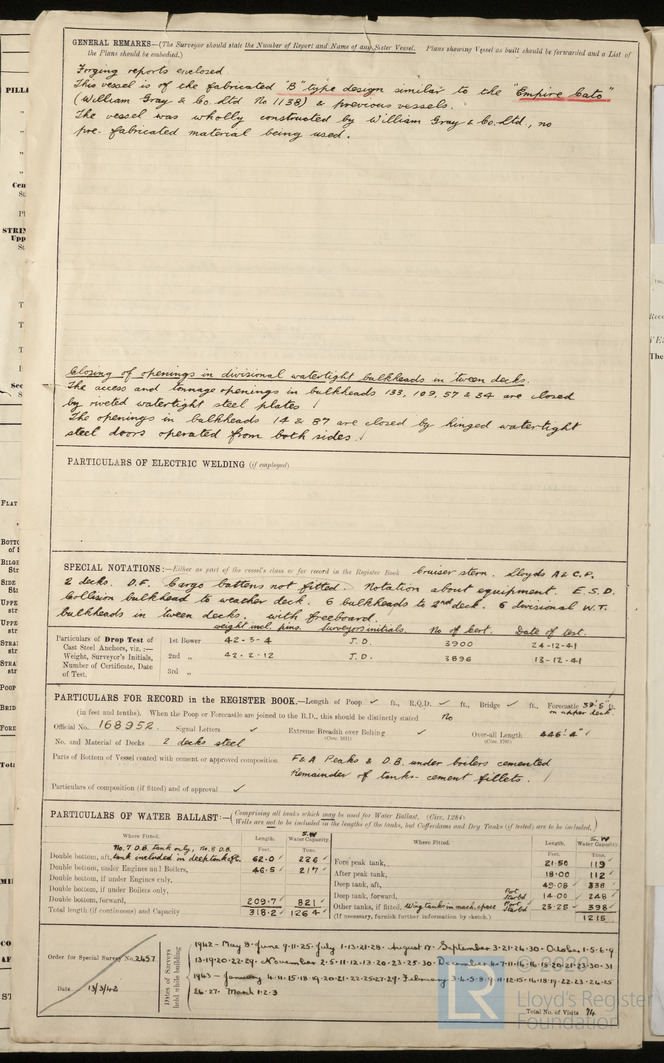 GENERAL REMARKS—(The Surveyor should state the Number of Report and Name of any Sister Vessel. Plans showing Vessel as built should be forwarded and a List of
the Plans should be embodied.)
Forging reports enclosed
This vessel is of the fabricated "B" type design similar to the "Empire Cato"
(William Gray & Co. Ltd No 1138) & previous vessels.
The vessel was wholly constructed by William Gray & Co. Ltd., no
pre-fabricated material being used.
Closing of openings in divisional watertight bulkheads in 'tween decks.
The access and tonnage openings in bulkheads 133, 109, 57 & 34 are closed
by riveted watertight steel plates
The openings in bulkheads 14 & 87 are closed by hinged watertight
steel doors operated from both sides.
PARTICULARS OF ELECTRIC WELDING (if employed)
SPECIAL NOTATIONS:—Either as part of the vessel's class or for record in the Register Book Cruiser stern. Lloyds A & C.P.
2 decks. D.F. Cargo battens not fitted. Notation about equipment. E.S.D.
Collision bulkhead to weather deck. 6 bulkheads to 2nd deck. 6 divisional W.T.
bulkheads in 'tween decks. with freeboard.
weight incl. pins. Surveyors initials. No of Cert. Date of test.
Particulars of Drop Test of
Cast Steel Anchors, viz.:—
Weight, Surveyor's Initials,
Number of Certificate, Date
of Test.
1st Bower 42-3-4 J.D. 3900 24-12-41
2nd „ 42-2-12 J.D. 3896 13-12-41
3rd „
PARTICULARS FOR RECORD in the REGISTER BOOK.—Length of Poop ✓ ft., R.Q.D. ✓ ft., Bridge ✓ ft., Forecastle 39'5 ft.
(in feet and tenths). When the Poop or Forecastle are joined to the B.D., this should be distinctly stated No on upper deck.
Official No. 168952. Signal Letters ✓ Extreme Breadth over Belting ✓ Over-all Length 446'4"
No. and Material of Decks 2 decks steel
Parts of Bottom of Vessel coated with cement or approved composition F & A Peaks & D.B. under boilers cemented
Remainder of tanks- cement fillets.
Particulars of composition (if fitted) and of approval ✓
PARTICULARS OF WATER BALLAST:—(Comprising all tanks which may be used for Water Ballast. (Circ. 1284)
Wells are not to be included in the lengths of the tanks, but Cofferdams and Dry Tanks (if tested) are to be included.)
Where Fitted. Length. S.W Water Capacity.
Feet. Tons.
No. 7 D.B. tank only, No. 8 D.B.
Double bottom, aft, tank included in deep tank aft. 62.0 226
Double bottom, under Engines and Boilers, 46.5 217
Double bottom, if under Engines only,
Double bottom, if under Boilers only,
Double bottom, forward, 209.7 821
Total length (if continuous) and Capacity 318.2 1264
Where Fitted. Length. S.W Water Capacity.
Feet. Tons.
Fore peak tank, 21.50 119
After peak tank, 18.00 112
Deep tank, aft, 49.08 338
Deep tank, forward, Port Starbd 14.00 248
Other tanks, if fitted, Wing tanks in mach. space Port Starbd 23.25 398
(If necessary, furnish further information by sketch.) 1215
Order for Special Survey No. 2457
Date 13/3/42
Dates of Surveys held while building
1942- May 8. June 9.11.25. July 1.13.21.28. August 17. September 3.21.24.30. October 1.5.6.9
13.19.20.22.29. November 2.5.11.12.13.20.23.25.30. December 4.7.11.14.16.18.20.21.23.30.31
1943- January 4.11.15.18.19.20.21.22.25.27.29. February 3.4.5.8.9.11.12.15.16.18.19.22.23.24.25
26.27. March 1.2.3
Total No. of Visits 74
LR
© 2020
Lloyd's Register
Foundation